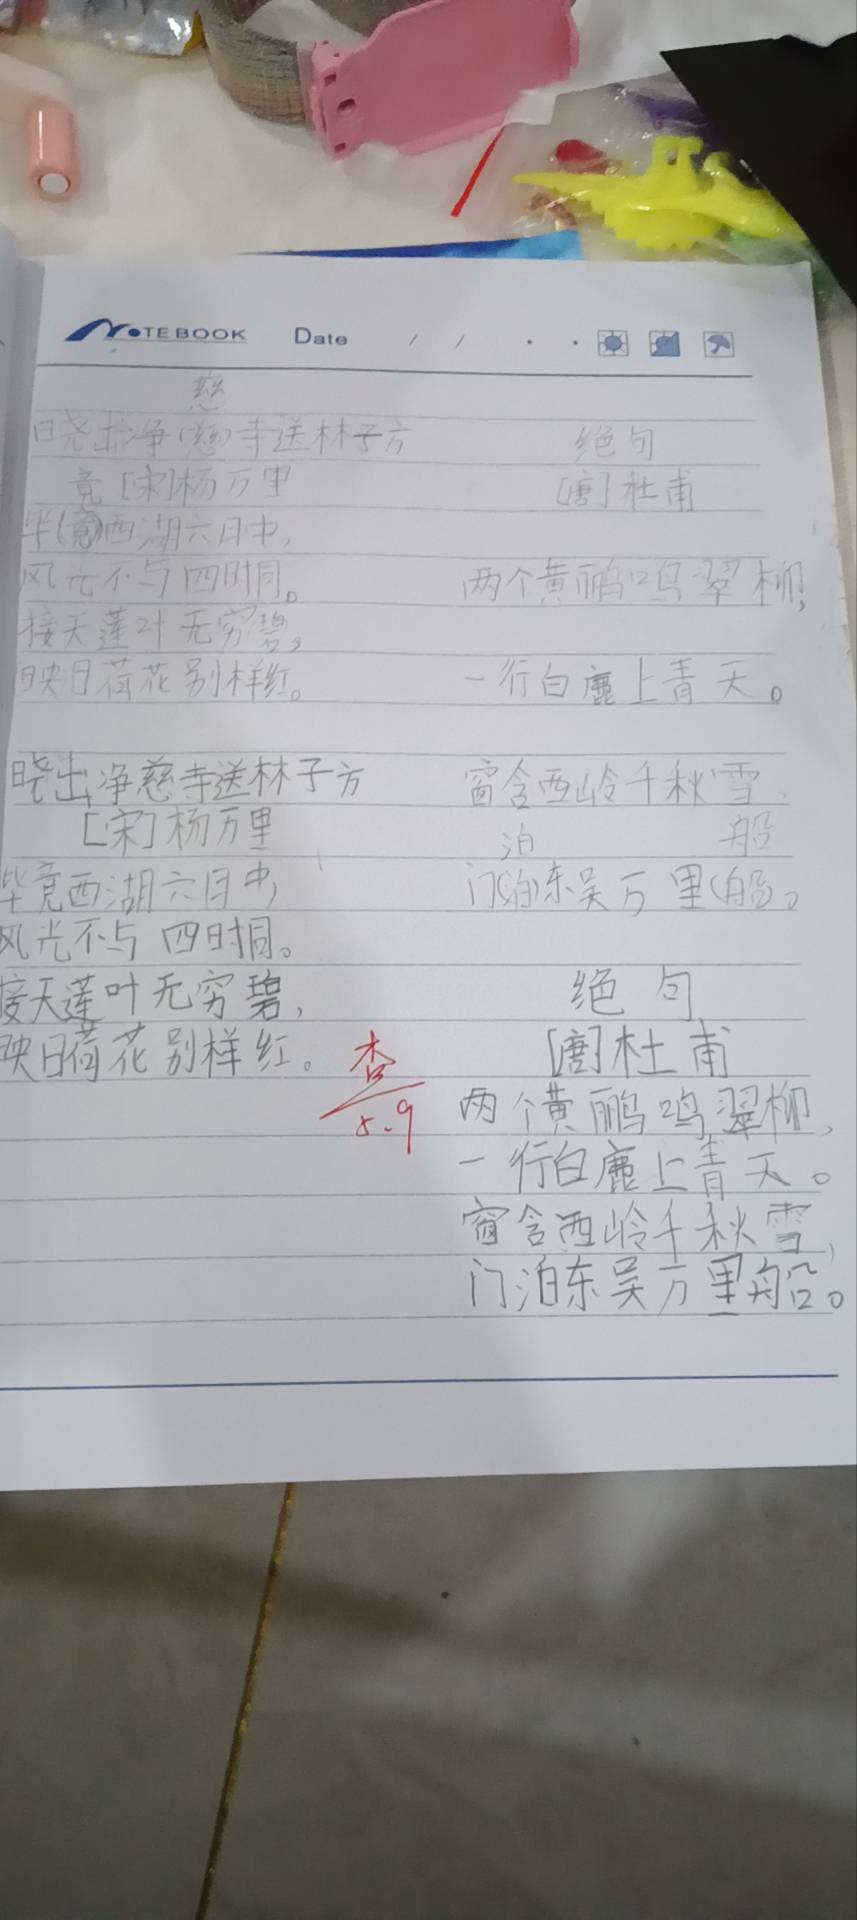 NOTEBOOK Date / /
慈
晓出净(慈)寺送林子方
竟 [宋]杨万里
毕(竟)西湖六月中,
风光不与四时同。
接天莲叶无穷碧,
映日荷花别样红。
晓出净慈寺送林子方
[宋]杨万里
毕竟西湖六月中,
风光不与四时同。
接天莲叶无穷碧,
映日荷花别样红。
查
5.9
绝句
[唐]杜甫
两个黄鹂鸣翠柳,
一行白鹿上青天。
窗含西岭千秋雪,
泊 船
门(泊)东吴万里(船)。
绝句
[唐]杜甫
两个黄鹂鸣翠柳,
一行白鹿上青天。
窗含西岭千秋雪,
门泊东吴万里船。